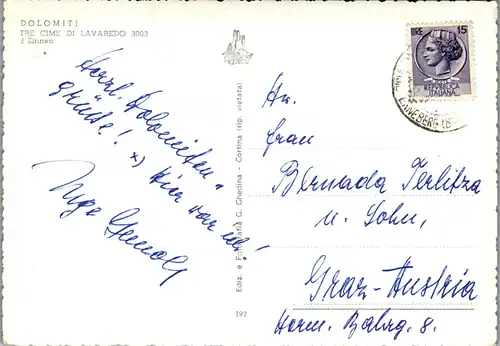 DOLOMITI
TRE CIME DI LAVAREDO 3003
3 Zinnen
Herzl. Dolomiten"
grüße!
x) hier war ich!
Ediz. e Fotografia G. Ghedina - Cortina (rip. vietata)
197
LIRE 15
REPVBBLICA
ITALIANA
An
Frau
Bernada Terlitza
u. Sohn,
Graz-Austria
Herm. Bahrg. 8.